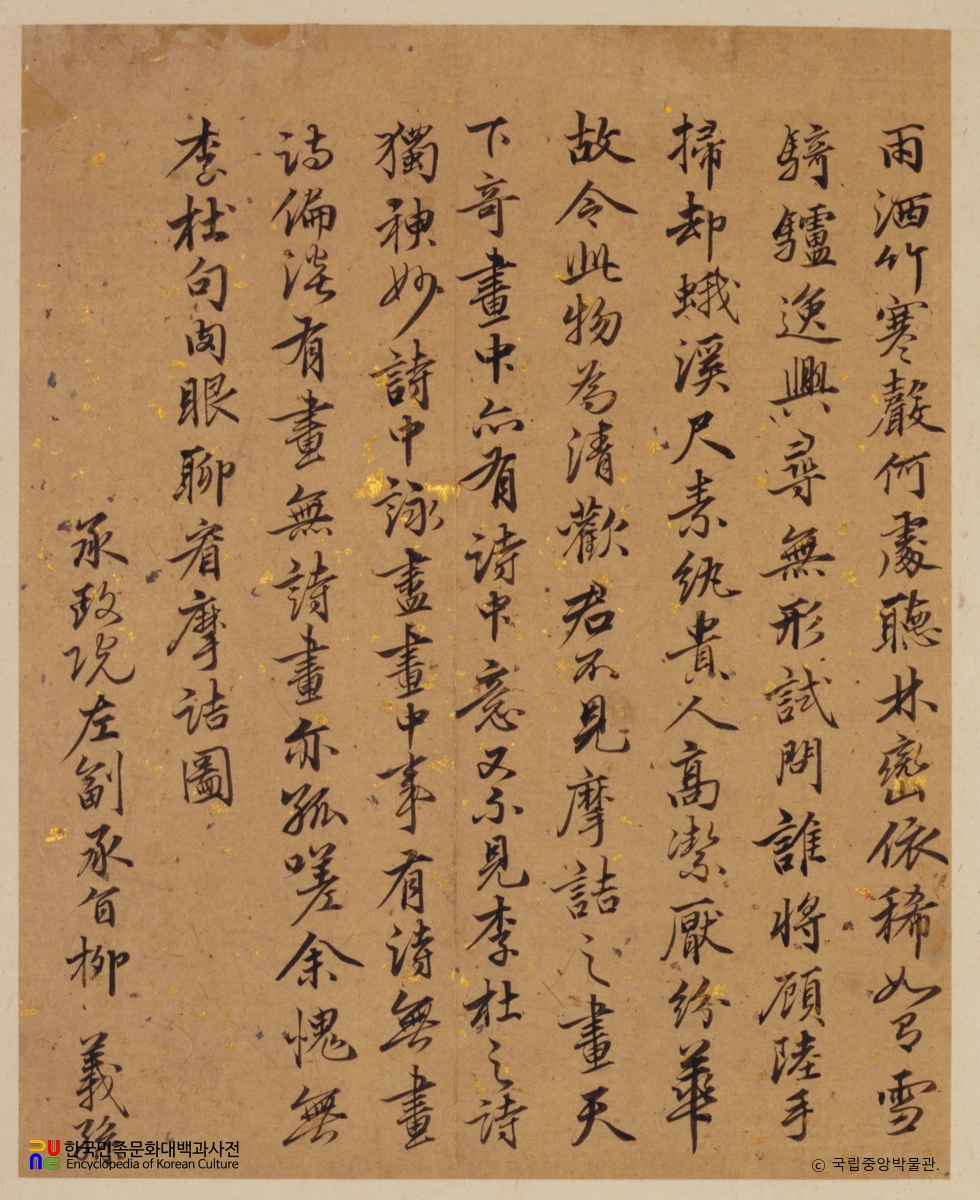 雨洒竹寒聲何處聽林巒依稀如有雪
騎驢逸興尋無形試問誰將顧陸手
掃却蛾溪尺素紈貴人高潔厭紛華
故令此物為清歡君不見摩詰之畫天
下奇畫中亦有詩中意又不見李杜之詩
獨神妙詩中詠盡畫中事有詩無畫
詩偏淡有畫無詩畫亦孤嗟余愧無
李杜句肉眼聊看摩詰圖
承政院左副承旨柳義孫
한국민족문화대백과사전
Encyclopedia of Korean Culture
© 국립중앙박물관.